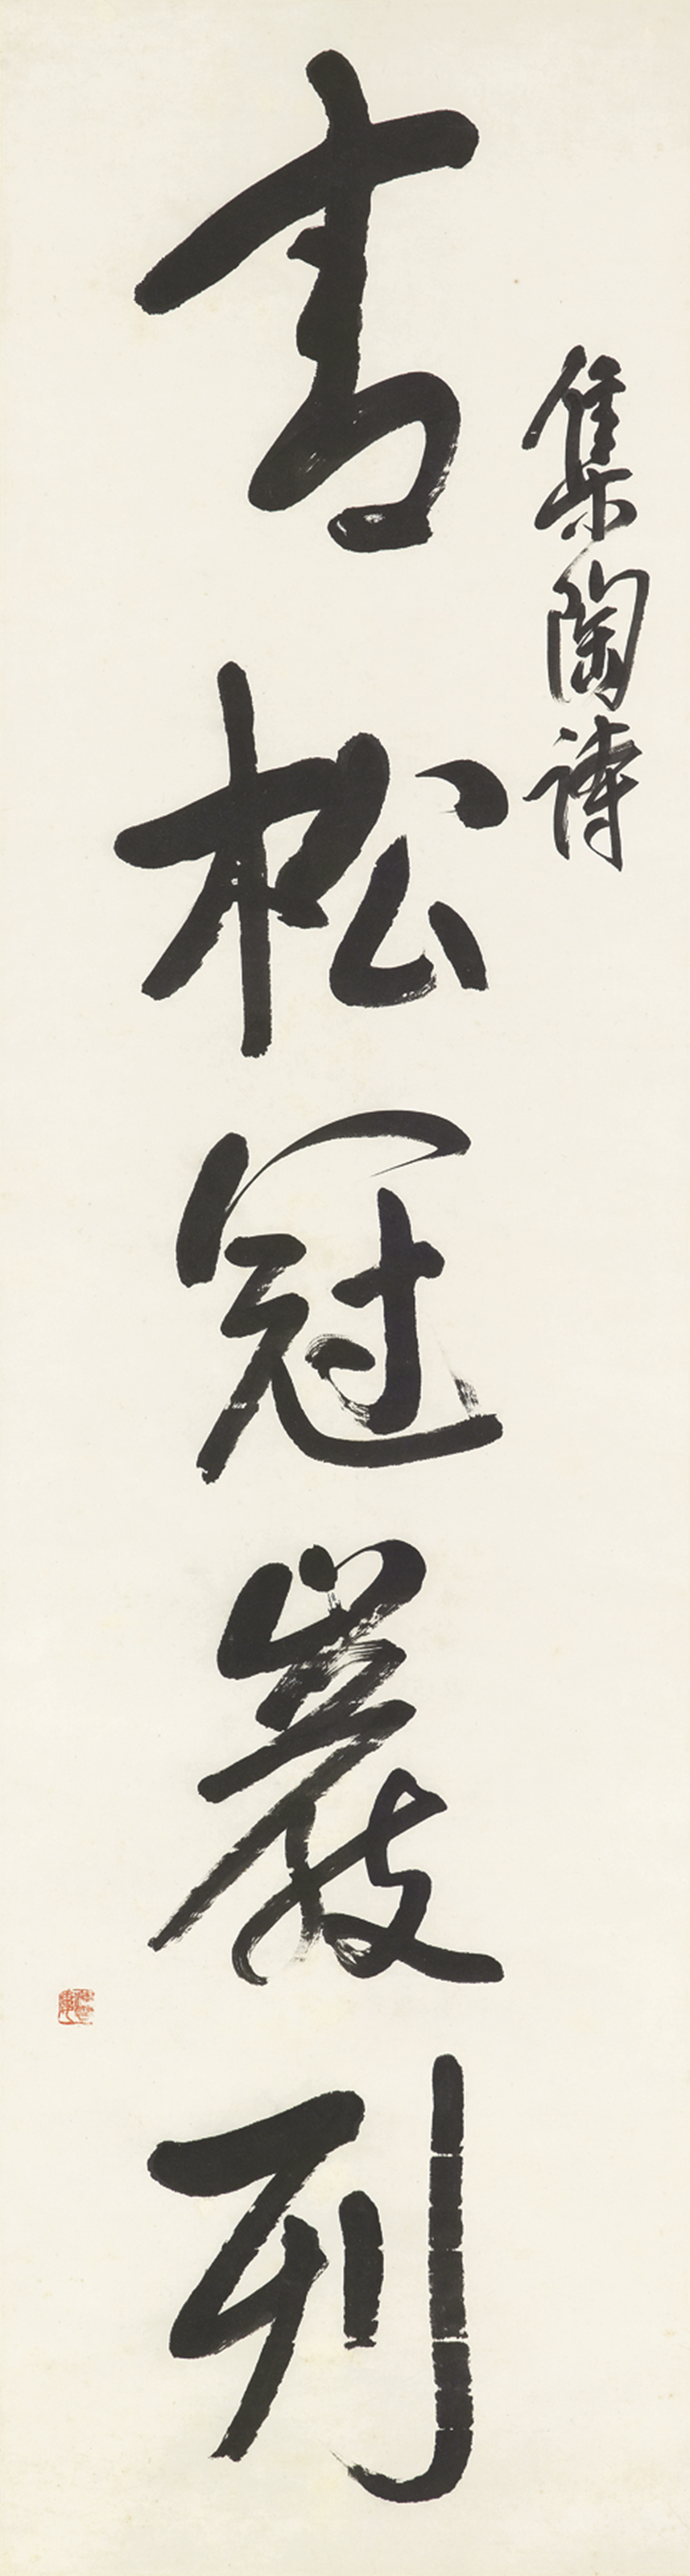 集陶詩
青松冠巖列